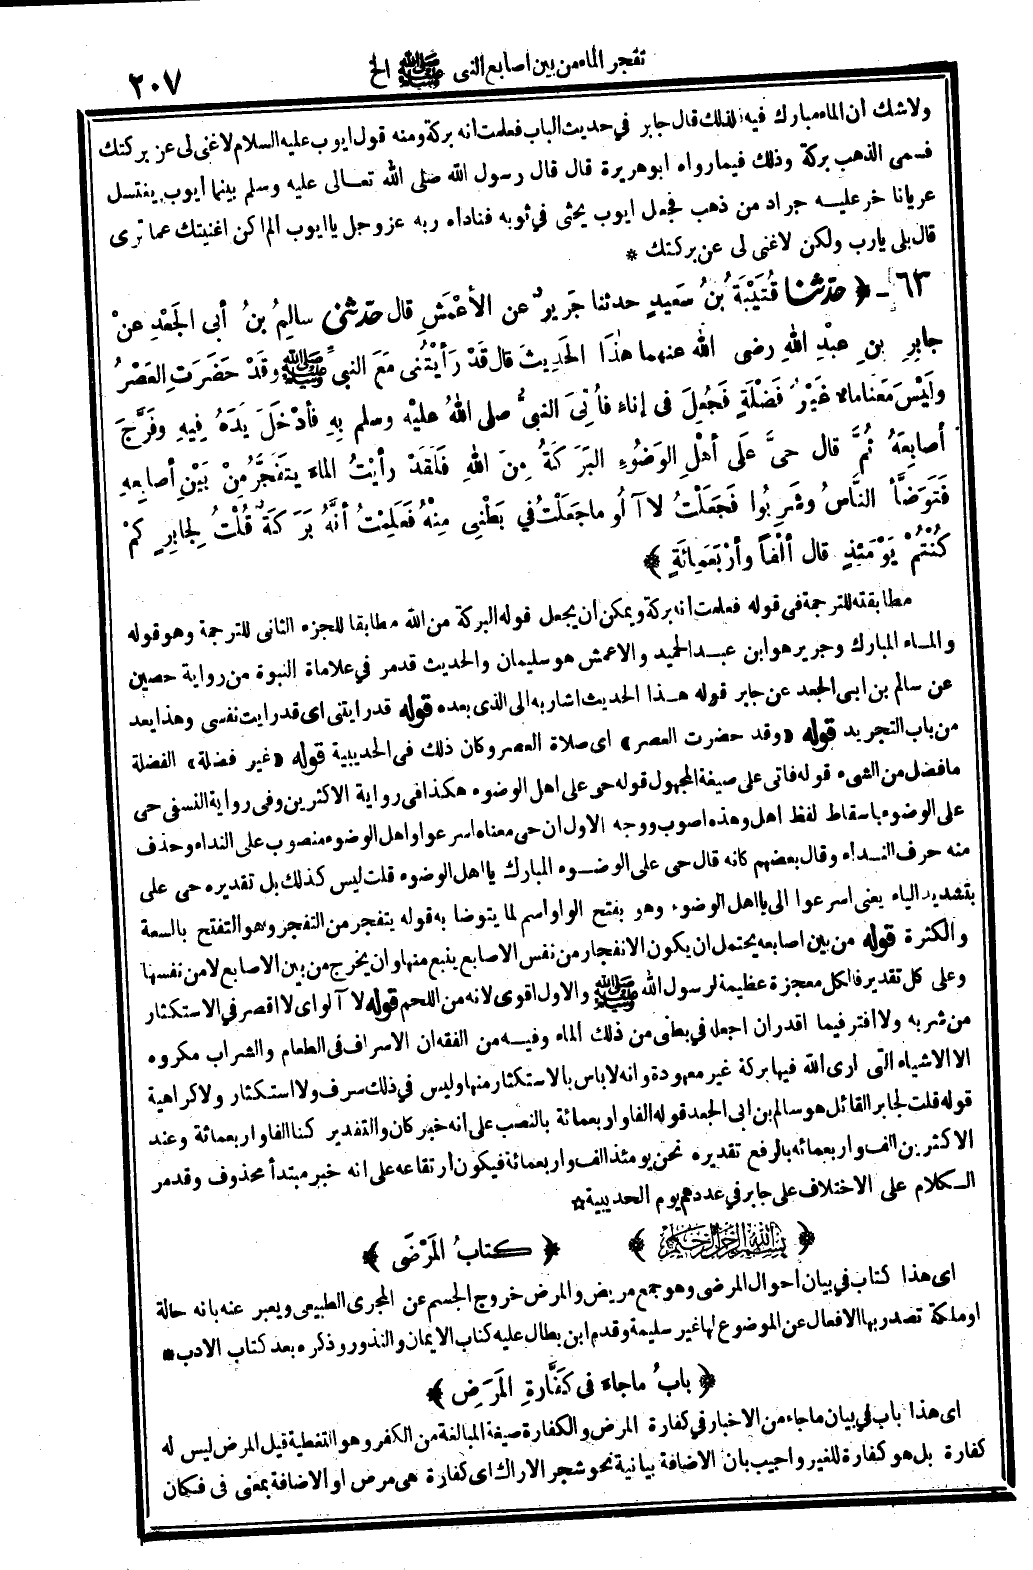 تفجر الماء من بين اصابع النبي ﷺ الخ
٢٠٧
ولا شك ان الماء مبارك فيه فلذلك قال جابر في حديث الباب فعلمت انه بركة ومنه قول ايوب عليه السلام لا غنى لى عن بركتك
فسمى الذهب بركة وذلك فيما رواه ابو هريرة قال قال رسول الله صلى الله تعالى عليه وسلم بينما ايوب يغتسل
عريانا خر عليه جراد من ذهب فجعل ايوب يحثى في ثوبه فناداه ربه عز وجل يا ايوب الم اكن اغنيتك عما ترى
قال بلى يارب ولكن لا غنى لى عن بركتك *
٦٣ - ﴿ حدثنا قُتَيْبَةُ بنُ سَعِيدٍ حدثنا جَرِيرٌ عن الأعْمَشِ قال حدّثني سالِمُ بنُ أبى الجَعْدِ عنْ
جابِرِ بنِ عبْدِ اللهِ رضى الله عنهما هٰذَا الحَدِيثَ قال قَدْ رَأيْتُنى مَعَ النبيِّ ﷺ وقَدْ حَضَرَتِ العَصْرُ
ولَيْسَ مَعَنا ماءٌ غَيْرُ فَضْلَةٍ فَجُعِلَ فى إناء فأُتِىَ النبيُّ صلى اللهُ عليْه وسلم بِهِ فأدْخَلَ يَدَهُ فِيهِ وفَرَّجَ
أصابِعَهُ ثُمَّ قال حىَّ عَلَى أهْلِ الوَضُوءِ البَرَكَةُ مِنَ اللهِ فَلَقَدْ رأيْتُ الماءَ يتَفَجَّرُ مِنْ بَيْنِ أصابِعِهِ
فَتَوَضَّأ النَّاسُ وشَرِبُوا فَجَعَلْتُ لا آلُو ما جَعَلْتُ في بَطْنِى مِنْهُ فَعَلِمْتُ أنَّهُ بَرَكَةٌ قُلْتُ لِجابِرٍ كَمْ
كُنْتُمْ يَوْمَئِذٍ قال ألْفاً وأرْبَعَمِائَةٍ ﴾
مطابقته للترجمة في قوله فعلمت انه بركة ويمكن ان يجعل قوله البركة من الله مطابقا للجزء الثانى للترجمة وهو قوله
والماء المبارك وجرير هو ابن عبد الحميد والاعمش هو سليمان والحديث قد مر في علاماة النبوة من رواية حصين
عن سالم بن ابى الجعد عن جابر قوله هذا الحديث اشار به الى الذى بعده قوله قد رايتنى اى قد رايت نفسى وهذا يعد
من باب التجريد قوله «وقد حضرت العصر» اى صلاة العصر وكان ذلك فى الحديبية قوله «غير فضلة» الفضلة
ما فضل من الشىء قوله فاتى على صيغة المجهول قوله حى على اهل الوضوء هكذا فى رواية الاكثرين وفى رواية النسفى حى
على الوضوء باسقاط لفظ اهل وهذه اصوب ووجه الاول ان حى معناه اسرعوا واهل الوضوء منصوب على النداء وحذف
منه حرف النداء وقال بعضهم كانه قال حى على الوضوء المبارك يا اهل الوضوء قلت ليس كذلك بل تقديره حى على
بتشديد الياء يعنى اسرعوا الى يا اهل الوضوء وهو بفتح الواو اسم لما يتوضا به قوله يتفجر من التفجر وهو التفتح بالسعة
والكثرة قوله من بين اصابعه يحتمل ان يكون الانفجار من نفس الاصابع ينبع منها وان يخرج من بين الاصابع لا من نفسها
وعلى كل تقدير فالكل معجزة عظيمة لرسول الله ﷺ والاول اقوى لانه من اللحم قوله لا آلو اى لا اقصر في الاستكثار
من شربه ولا افتر فيما اقدر ان اجعله في بطنى من ذلك الماء وفيه من الفقه ان الاسراف فى الطعام والشراب مكروه
الا الاشياء التى ارى الله فيها بركة غير معهودة وانه لا باس بالاستكثار منها وليس في ذلك سرف ولا استكثار ولا كراهية
قوله قلت لجابر القائل هو سالم بن ابى الجعد قوله الفا واربعمائة بالنصب على انه خبر كان والتقدير كنا الفا واربعمائة وعند
الاكثرين الف واربعمائه بالرفع تقديره نحن يومئذ الف واربعمائة فيكون ارتقاعه على انه خبر مبتدأ محذوف وقد مر
الكلام على الاختلاف على جابر في عددهم يوم الحديبية *
﴿ بسم الله الرحمن الرحيم ﴾ ﴿ كتابُ المَرْضَى ﴾
اى هذا كتاب في بيان احوال المرضى وهو جمع مريض والمرض خروج الجسم عن المجرى الطبيعى ويعبر عنه بانه حالة
او ملكة تصدر بها الافعال عن الموضوع لها غير سليمة وقدم ابن بطال عليه كتاب الايمان والنذور وذكره بعد كتاب الادب *
﴿ بابُ ما جاءَ فى كَفَّارَةِ المَرَضِ ﴾
اى هذا باب في بيان ما جاء من الاخبار في كفارة المرض والكفارة صيغة المبالغة من الكفر وهو التغطية قيل المرض ليس له
كفارة بل هو كفارة للغير واجيب بان الاضافة بيانية نحو شجر الاراك اى كفارة هى مرض او الاضافة بمعنى فى فكان